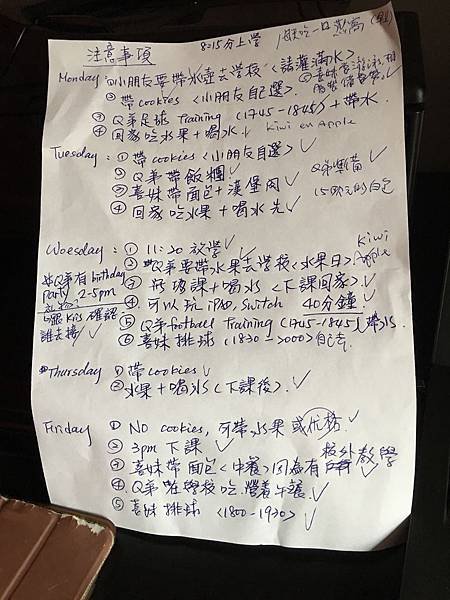 注意事項 8:15分上學
Monday: ① 小朋友要帶水壺去學校 <請灌滿水>
② 帶 cookies <小朋友自選>
③ Q弟足球 Training (1745-1845) + 帶水
④ 回家吃水果 + 喝水 Kiwi en Apple
Tuesday: ① 帶 cookies <小朋友自選>
② Q弟帶飯糰
③ 喜妹帶面包 + 漢堡肉
④ 回家吃水果 + 喝水 先
15歐元的白包
Woesday: ① 11:30 放學
② *Q弟要帶水果去學校 <水果日> Kiwi Apple
*Q弟有 birthday party 2-5pm
喝水 <下課回家>
④ 可以玩 iPad, Switch 40分鐘
跟 Kris 確認誰去接
⑤ Q弟 football Training (1745-1845)
⑥ 喜妹排球 (1830-2000)
Thursday ① 帶 cookies
② 水果 + 喝水 <下課後>
Friday ① NO cookies, 可帶水果 或優格
② 3pm 下課
③ 喜妹帶面包 <中餐> 因為有 校外教學
④ Q弟在學校吃營養午餐
⑤ 喜妹排球 <1800-1930>